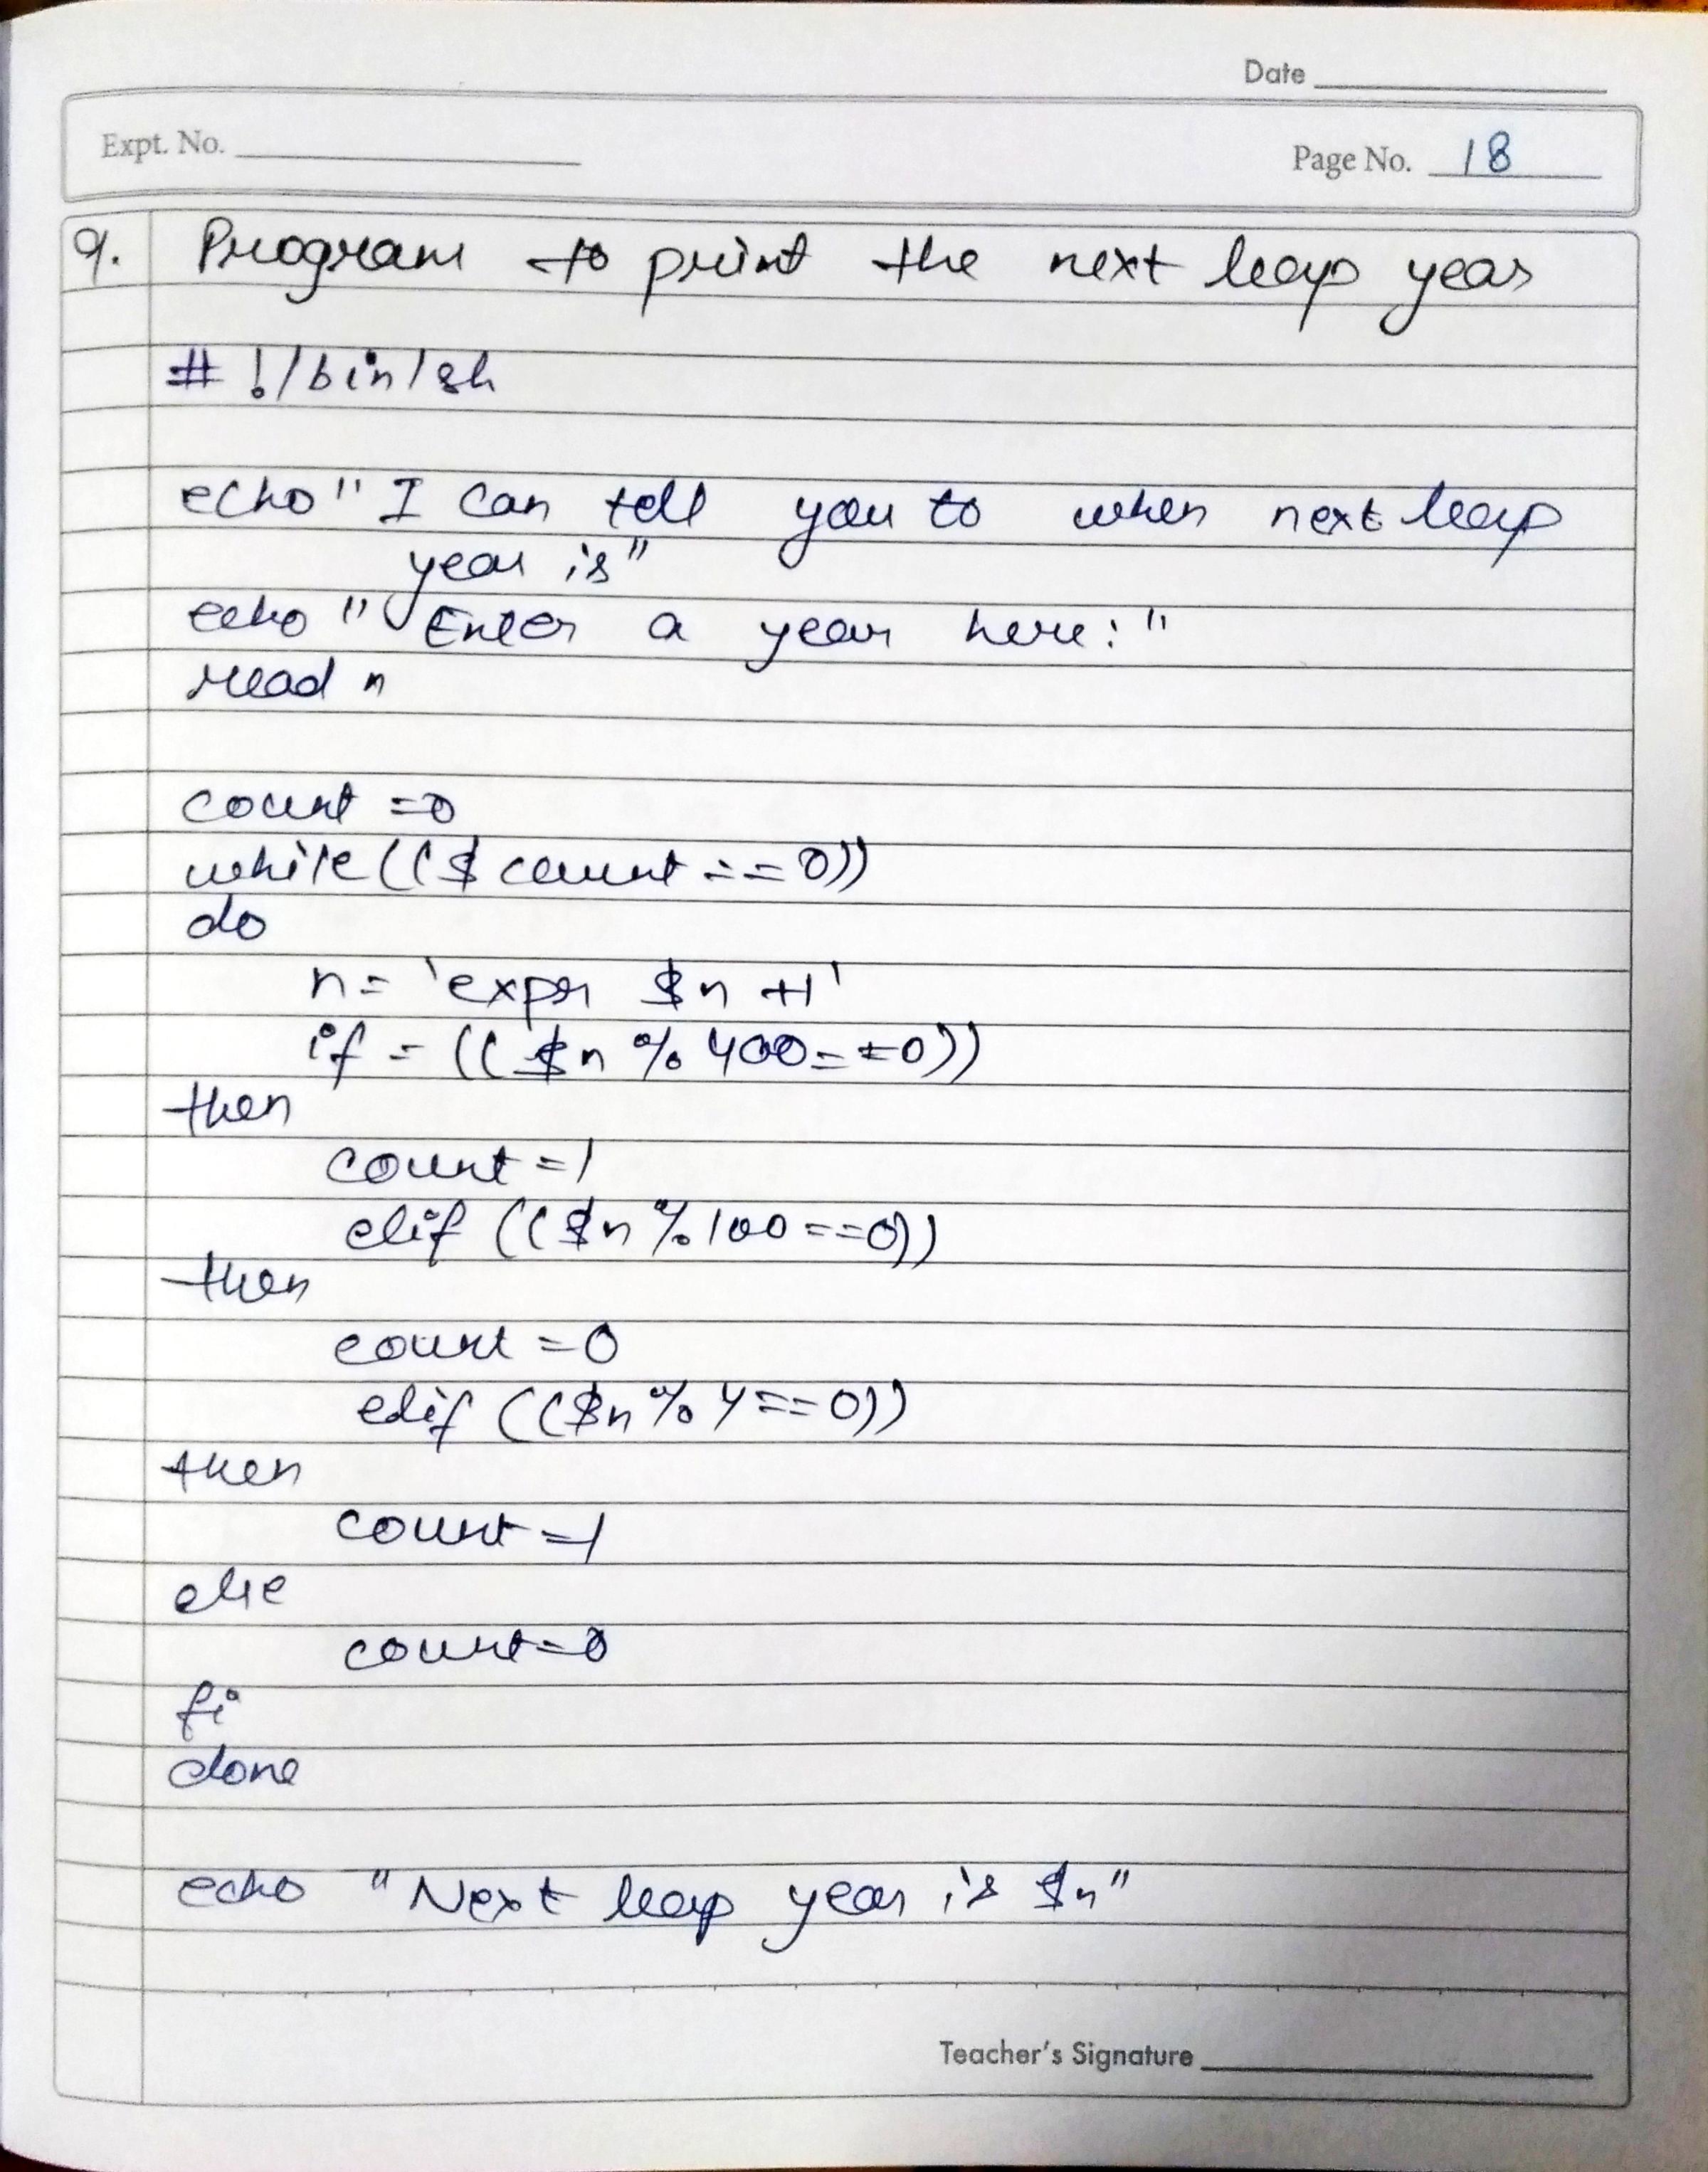 Date
Expt. No.
Page No. 18
9. Program to print the next leap year
#!/bin/sh
echo "I can tell you to when next leap
year is"
echo "Enter a year here:"
read n
count =0
while (($ count == 0))
do
n= `expr $n +1'
if = (( $n % 400==0))
then
count =1
elif (($n % 100 ==0))
then
count =0
elif (($n % 4 == 0))
then
count =1
else
count=0
fi
done
echo "Next leap year is $n"
Teacher's Signature